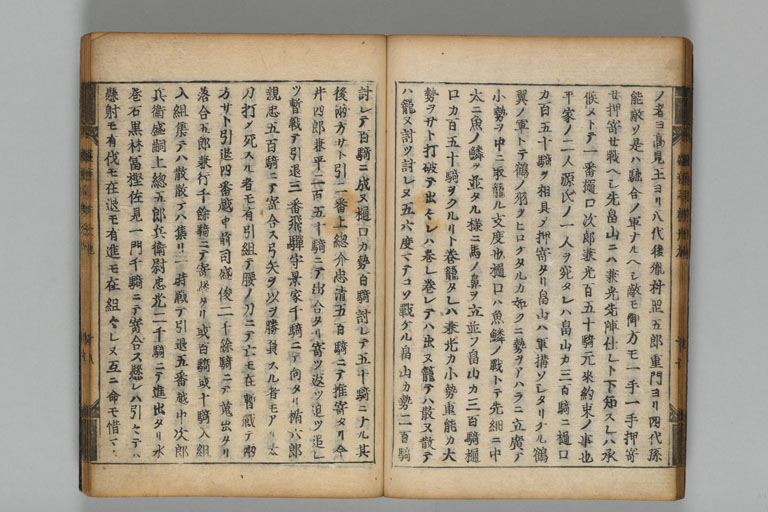 ノ者ヨ高見王ヨリ八代後胤村岡五郎重門ヨリ四代孫
能敵ソ是ハ馳合ノ軍ナルヘシ敵モ御方モ一手一手押寄
セ押寄セ戦ヘシ先畠山ニハ兼光先陣仕レト下知スレハ承
候ヌトテ一番樋口次郎兼光百五十騎元来約束ノ事也
平家ノ二人源氏ノ一人ヲ宛タレハ畠山カ三百騎ニ樋口
カ百五十騎ヲ相具メ押寄タリ畠山ハ軍構ソシタリケル鶴
翼ノ軍トテ鶴ノ羽ヲヒロケタルカ如クニ勢ヲアハラニ立廣テ
小勢ヲ中ニ取籠ル支度也樋口ハ魚鱗ノ戦トテ先細ニ中
太ニ魚ノ鱗ヲ並タル様ニ馬ノ鼻ヲ立並フ畠山カ三百騎樋
口カ百五十騎ヲクルリト巻籠タレハ兼光カ小勢重能カ大
勢ヲサト打破テ出ヌレハ巻レ巻レテハ出ヌ籠テハ散ヌ散テ
ハ籠ヌ討ツ討レヌ五六度マテコソ戦ケル畠山カ勢二百騎
討レテ百騎ニ成ヌ樋口カ勢百騎討レテ五十騎ニナル其
後両方サト引二番上総介忠清五百騎ニテ推寄タリ今
井四郎兼平二百五十騎ニテ出合タリ寄ツ返ツ追ツ追レ
ツ暫戦テ引退三番飛騨守景家千騎ニテ向タリ楯六郎
親忠五百騎ニテ寄合ス弓矢ヲ以ヲ勝負スル者モアリ太
刀打メ死スル者モ有引組テ腰ノ刀ニテ亡モ在暫戦テ両
方サト引退四番越中前司盛俊二千餘騎ニテ蒐出タリ
落合五郎兼行千餘騎ニテ寄合タリ或百騎或十騎入組
入組集テハ散散テハ集リ一時戦テ引退五番越中次郎
兵衛盛嗣上総五郎兵衛尉忠光二千騎ニテ進出タリ水
巻石黒林冨樫佐見一門千騎ニテ寄合ス懸レハ引ヒテハ
懸射モ有伐モ在退モ有進モ在組ヌレヌ互ニ命モ惜マス